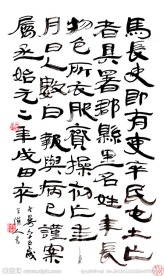 馬長吏即有吏卒民屯士亡
者具署郡縣里名姓年長
物色所衣服齎操初亡年
月日人數白報與病已謹案
屬丞始元二年戌田卒